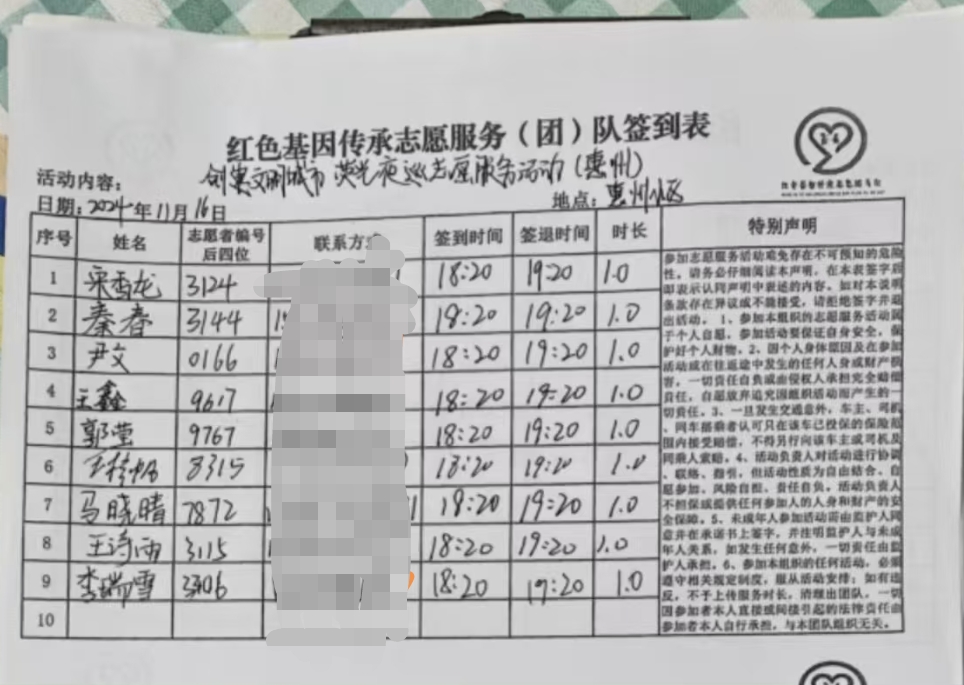 红色基因传承志愿服务（团）队签到表
活动内容： 创建文明城市 荧光夜巡志愿服务活动（惠州）
日期：2024年11月16日 地点：惠州小区
序号 姓名 志愿者编号后四位 联系方式 签到时间 签退时间 时长 特别声明
1 采香龙 3124 18:20 19:20 1.0
2 秦春 3144 18:20 19:20 1.0
3 尹文 0166 18:20 19:20 1.0
4 王鑫 9617 18:20 19:20 1.0
5 郭莹 9767 18:20 19:20 1.0
6 8315 18:20 19:20 1.0
7 马晓晴 7872 18:20 19:20 1.0
8 王诗雨 3115 18:20 19:20 1.0
9 李瑞雪 18:20 19:20 1.0
10
参加志愿服务活动难免存在不可预知的危险
性，请务必仔细阅读本声明，在本表签字后
即表示认同声明中表述的内容。如对本说明
条款存在异议或不能接受，请拒绝签字并退
出活动。1、参加本组织的志愿服务活动属
于个人自愿，参加活动要保证自身安全，保
护好个人财物。2、因个人身体原因及在参加
活动或在往返途中发生的任何人身或财产损
害，一切责任自负或由侵权人承担完全赔偿
责任，自愿放弃追究因组织活动而产生的一
切责任。3、一旦发生交通意外，车主、司机
、同车搭乘者认可只在该车已投保的保险范
围内接受赔偿，不得另行向该车主或司机及
同乘人索赔。4、活动负责人对活动进行协调
、联络、指引，但活动性质为自由结合、自
愿参加、风险自担、责任自负，活动负责人
不担保或提供任何参加人的人身和财产的安
全保障。5、未成年人参加活动需由监护人同
意并在承诺书上签字，并注明监护人与未成
年人关系，如发生任何意外，一切责任由监
护人承担。6、参加本组织的任何活动，必须
遵守相关规定制度，服从活动安排；如有违
反，不予上传服务时长，清理出团队。一切
因参加者本人直接或间接引起的法律责任由
参加者本人自行承担，与本团队组织无关。